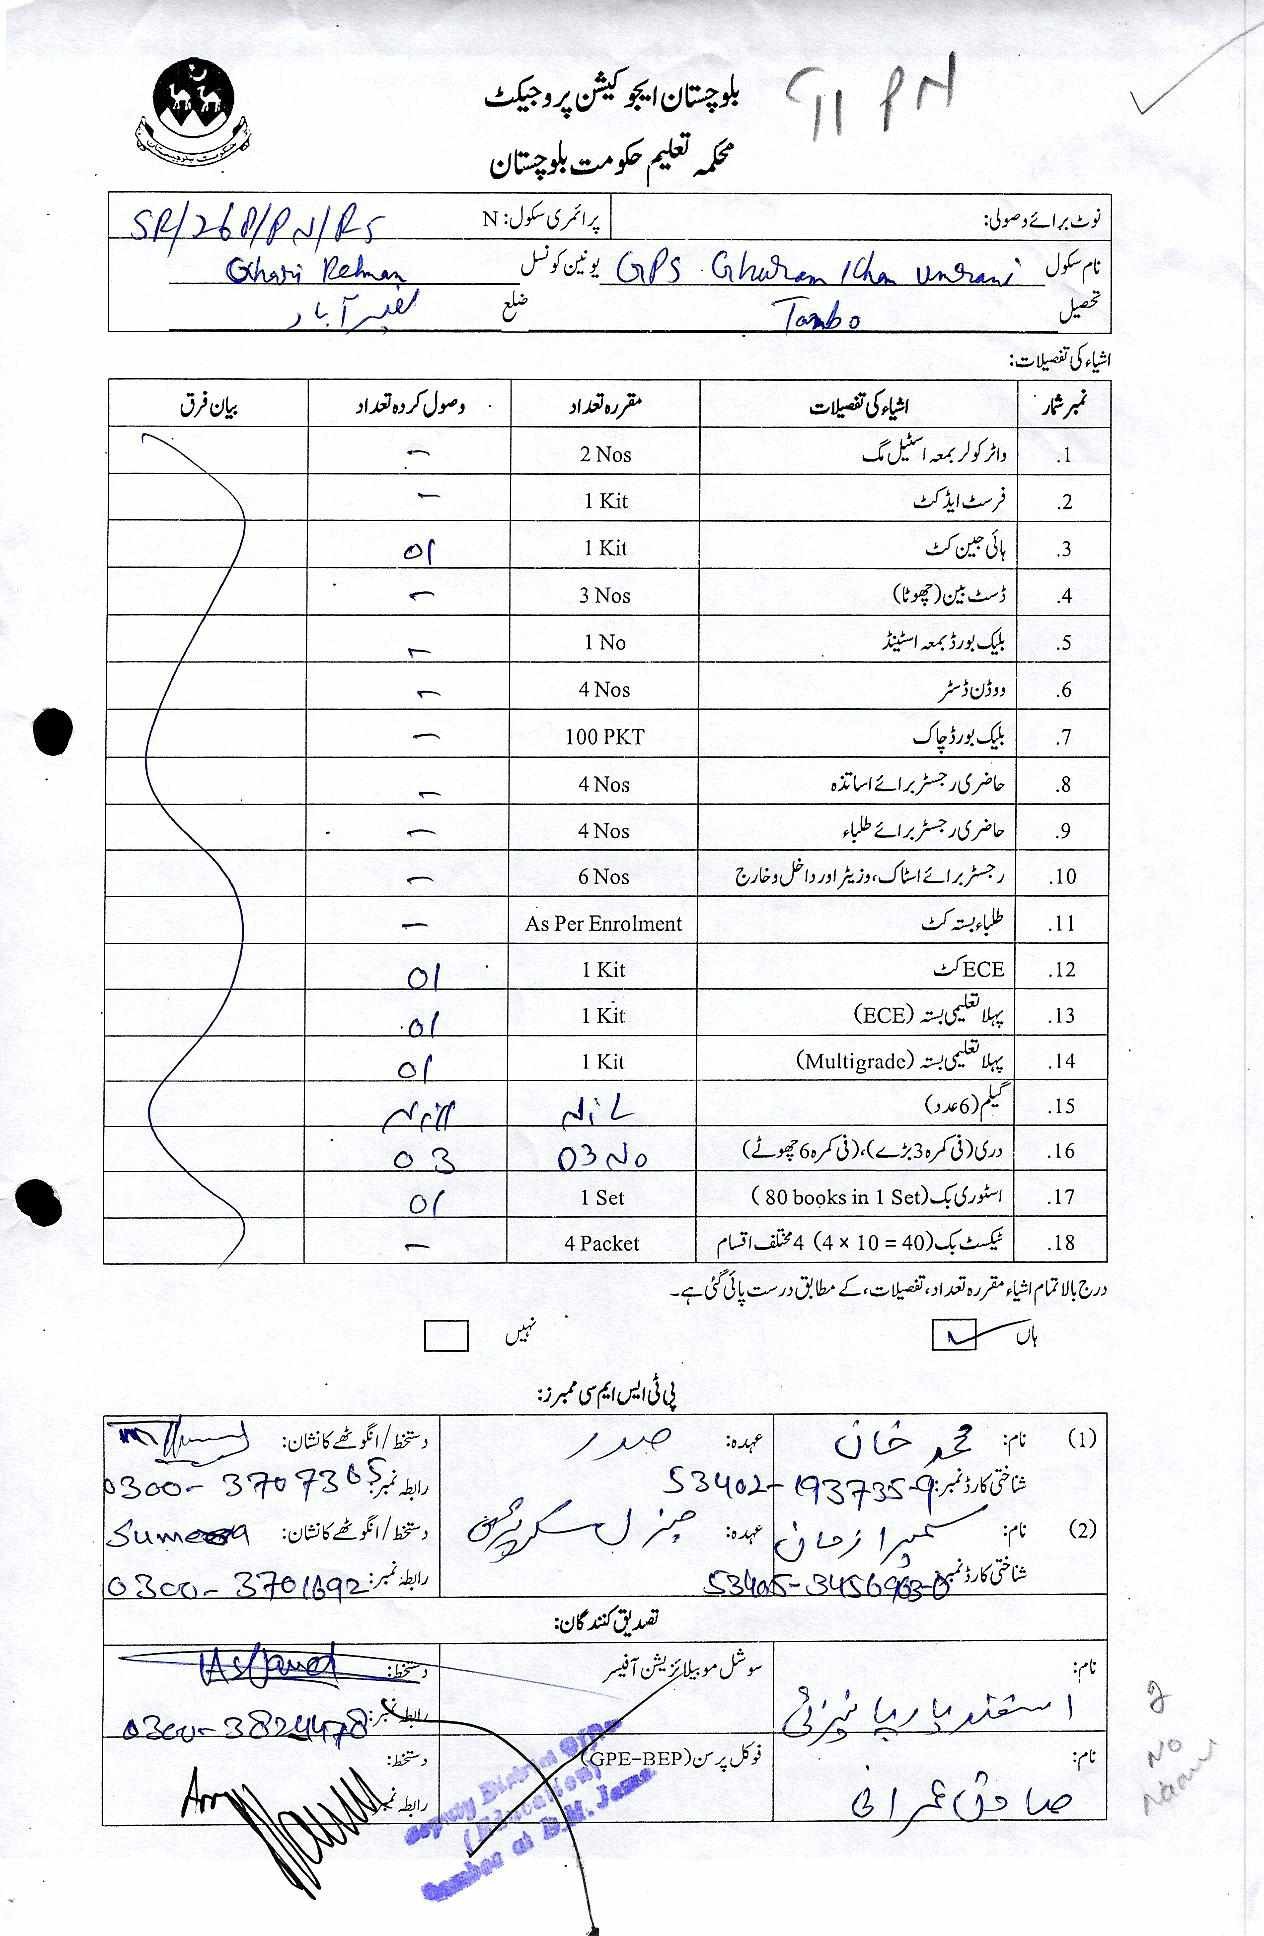 بلوچستان ایجوکیشن پروجیکٹ
PN
محکمہ تعلیم حکومت بلوچستان
نوٹ برائے وصولی: پرائمری سکول: N SR/268/PN/RS
نام سکول GPS Ghulam Khan Umrani یونین کونسل Ghari Rehman
تحصیل Tambo ضلع نصیرآباد
اشیاء کی تفصیلات:
نمبر شمار اشیاء کی تفصیلات مقررہ تعداد وصول کردہ تعداد بیان فرق
1. واٹر کولر بمعہ اسٹیل مگ 2 Nos –
2. فرسٹ ایڈ کٹ 1 Kit –
3. ہائی جین کٹ 1 Kit 01
4. ڈسٹ بین (چھوٹا) 3 Nos –
5. بلیک بورڈ بمعہ اسٹینڈ 1 No –
6. ووڈن ڈسٹر 4 Nos –
7. بلیک بورڈ چاک 100 PKT –
8. حاضری رجسٹر برائے اساتذہ 4 Nos –
9. حاضری رجسٹر برائے طلباء 4 Nos –
10. رجسٹر برائے اسٹاک، وزیٹر اور داخل و خارج 6 Nos –
11. طلباء بستہ کٹ As Per Enrolment –
12. ECE کٹ 1 Kit 01
13. پہلا تعلیمی بستہ (ECE) 1 Kit 01
14. پہلا تعلیمی بستہ (Multigrade) 1 Kit 01
15. گیلم (6 عدد) NiL Nill
16. دری (فی کمرہ 3 بڑے)، (فی کمرہ 6 چھوٹے) 03 No 03
17. اسٹوری بک (80 books in 1 Set) 1 Set 01
18. ٹیکسٹ بک (4 × 10 = 40) 4 مختلف اقسام 4 Packet –
درج بالا تمام اشیاء مقررہ تعداد، تفصیلات، کے مطابق درست پائی گئی ہے۔
ہاں ✓ نہیں
پی ٹی ایس ایم سی ممبرز:
(1) نام: محمد خان عہدہ: صدر دستخط/انگوٹھے کا نشان:
شناختی کارڈ نمبر: 53402-193735-9 رابطہ نمبر: 0300-3707305
(2) نام: سمیرا زمانی عہدہ: جنرل سکریٹری دستخط/انگوٹھے کا نشان: Sumera
شناختی کارڈ نمبر: رابطہ نمبر: 0300-3701692
تصدیق کنندگان:
نام: اسفند یار پانیزئی سوشل موبیلائزیشن آفیسر دستخط:
رابطہ نمبر: 0300-3824478
نام: صادق عمرانی فوکل پرسن (GPE-BEP) دستخط:
رابطہ نمبر
Deputy District Officer
(Education)
Tamboo at D.M. Jamali
2
No
Naam